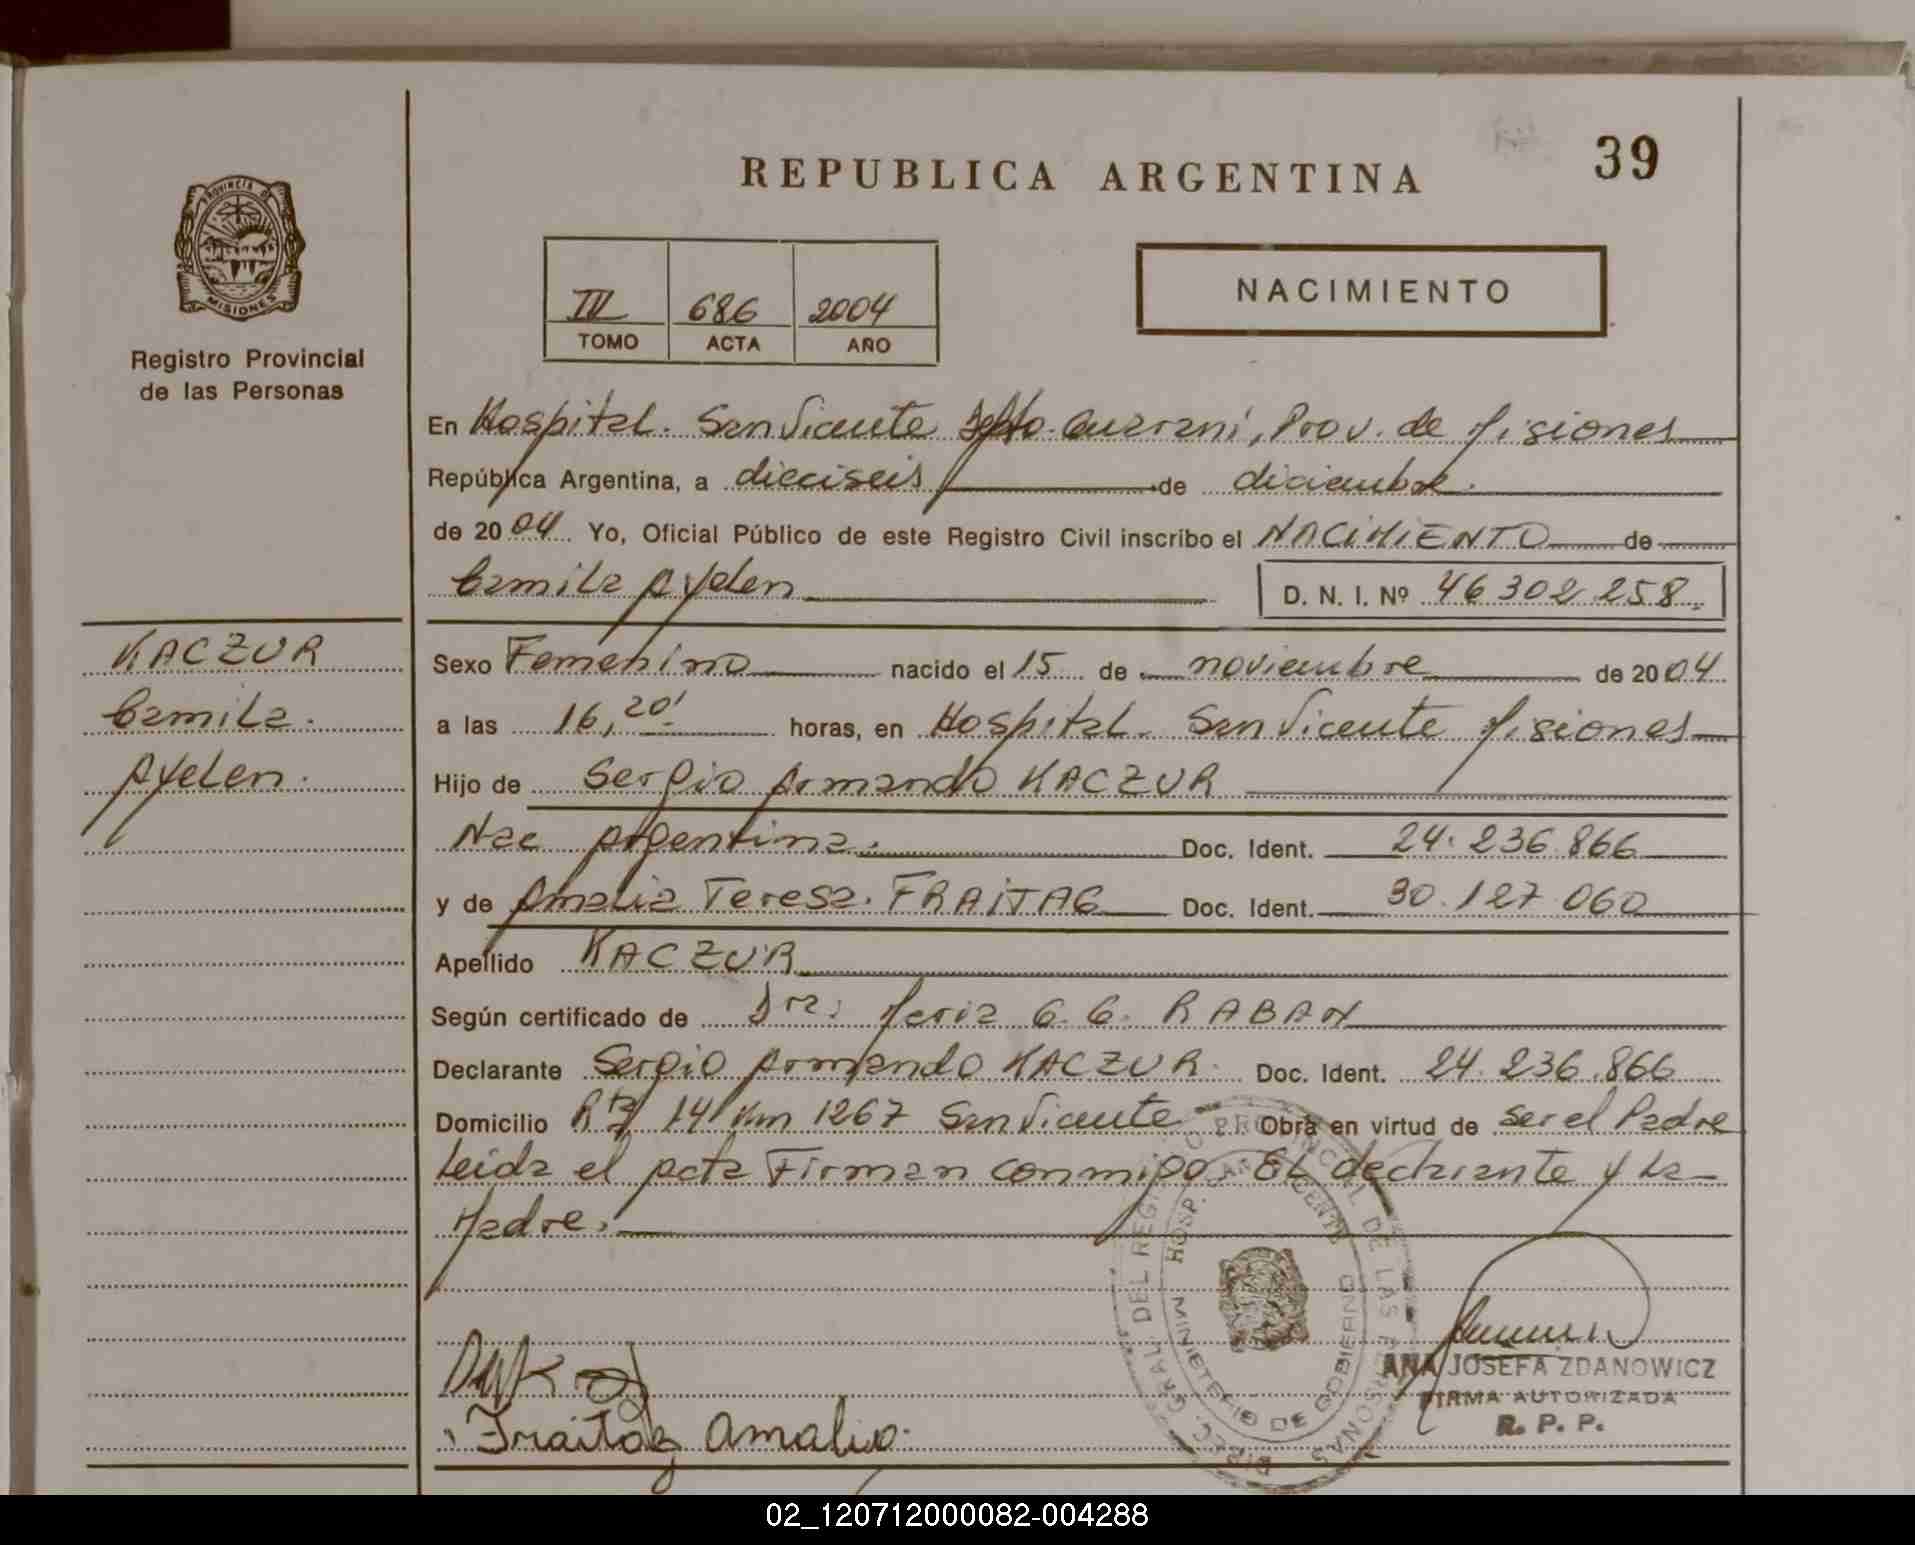 39
REPUBLICA ARGENTINA
PROVINCIA DE
MISIONES
Registro Provincial
de las Personas
IV 686 2004
TOMO ACTA AÑO
NACIMIENTO
En Hospital. San Vicente Depto. Guarani, Prov. de Misiones
República Argentina, a dieciseis de diciembre.
de 2004 Yo, Oficial Público de este Registro Civil inscribo el NACIMIENTO de
Camila Ayelen D. N. I. Nº 46 302 258.
KACZUR
Camila.
Ayelen.
Sexo Femenino nacido el 15 de noviembre de 2004
a las 16,20' horas, en Hospital. San Vicente Misiones
Hijo de Sergio Armando KACZUR
Nac Argentina. Doc. Ident. 24.236.866
y de Amalia Teresa. FRAITAG Doc. Ident. 30.127 060
Apellido KACZUR
Según certificado de Dra: Maria G. G. RABAN
Declarante Sergio Armando KACZUR. Doc. Ident. 24.236.866
Domicilio Rta 14 Km 1267 San Vicente Obra en virtud de ser el Padre
Leida el Acta Firman conmigo El declarante y La
Madre.
DIREC. GRAL. DEL REGISTRO PROVINCIAL DE LAS PERSONAS
HOSP. SAN VICENTE
MINISTERIO DE GOBIERNO
ANA JOSEFA ZDANOWICZ
FIRMA AUTORIZADA
R. P. P.
Fraitag Amalia.
02_120712000082-004288